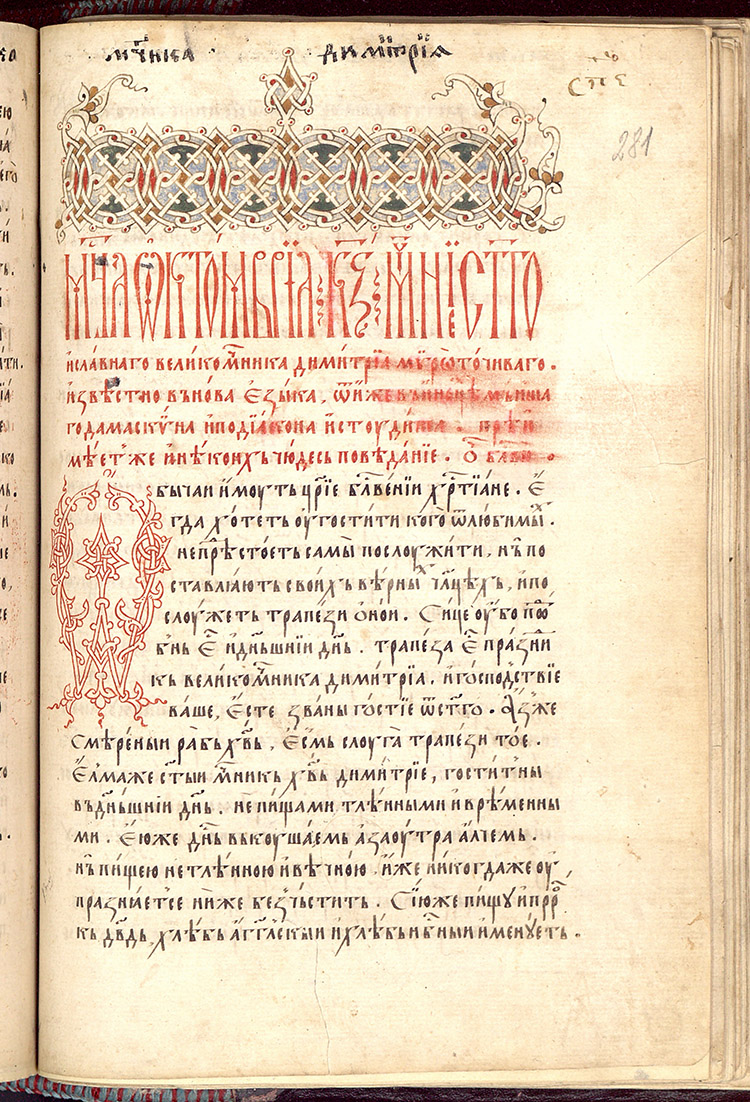 мч҃нка димѝтрїа
сп҃е
281
мцⷭ҇а ѡктомврїа к҃ѕ мч҃нїе ст҃го
и славнаго великомⷱ҇нника димѝтрїа мѵрѡточиваго.
извѣстно въ нова езыка, ѿ иже въ иноцѣ мѝниша
го дамаскѵна ѵподїакона и стоудита. прѣи
мѣетже и нѣкоихъ чюдесь повѣданїе. ѻ҆ благⷭ҇ви.
бычаи и҆моуть цр҃їе блг҃венїи хрⷭ҇тїане. Е҆
гда хо́теть оугостити кого̀ ѿ любимыⷯ.
не прѣстоеть самы̀ послоужити, нъ по
ставлꙗють своихъ вѣрныⷯ чл҃цехъ, и҆ по
слоужеть трапези о҆нои. Сице оубо поⷣ
внь еⷭ҇ и҆ дн҃ьшнїи дн҃ь. трапеза еⷭ҇ празⷣни
къ великомⷱ҇нника димитрїа. и҆ госпоⷣствїе
ваше, е҆сте звани гостїе ѿ ст҃го. А҆з же
смѣреныи рабъ хв҃ь, е҆смь слоуга̀ трапези тое.
Е҆лмаже ст҃ыи мⷱ҇нникь хв҃ь димитрїе, гостит ны
въ дн҃ьшнїи дн҃ь. не пищами тлѣнными и҆ врѣменны
ми. Е҆юже дн҃ь вькоушаемь а заоутра алчемь.
нъ пищею нетлѣнною и҆ вѣчною. и҆же никогдаже оу
празнꙗетсе ниже безчьстить. Сїюже пищу и҆ прⷪ҇р
къ дв҃дь, хлѣбъ агг҃лскыи и҆ хлѣбъ нбⷭ҇ныи и҆менуеть.